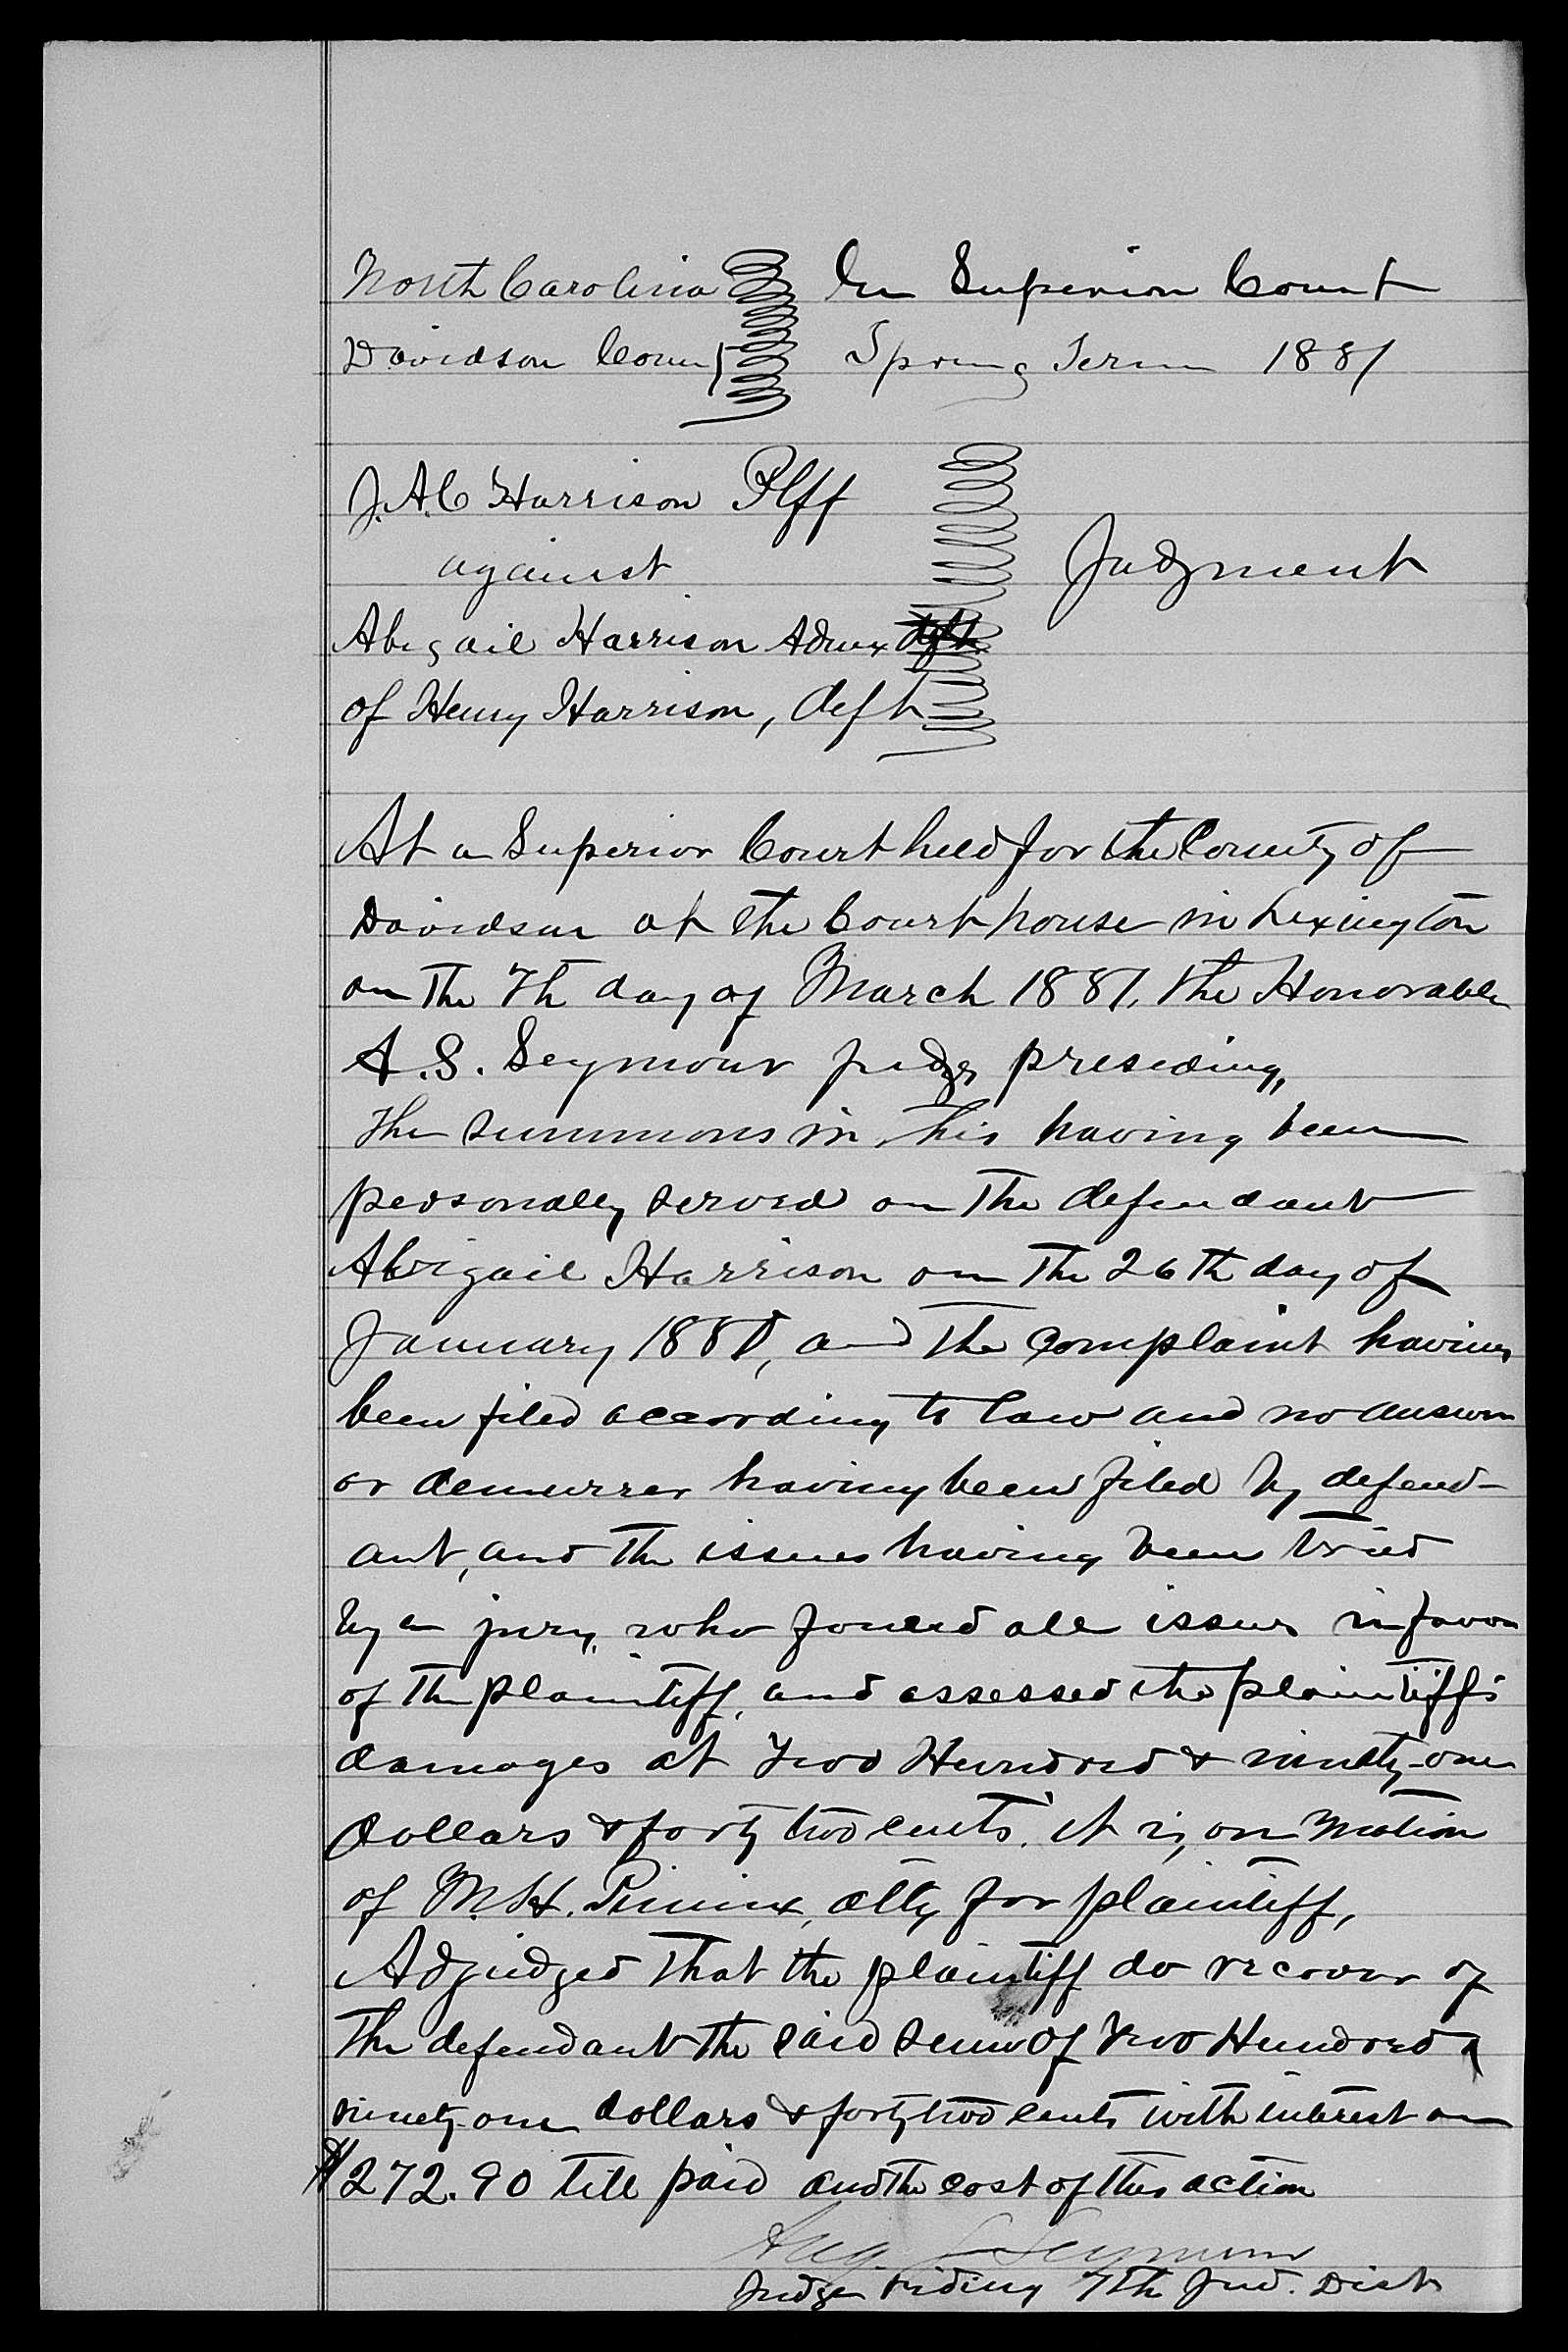 North Carolina In Superior Court
Davidson County Spring Term 1881
J. A. C Harrison Plff
against
Judgment
Abigail Harrison Admx
of Henry Harrison, deft
At a Superior Court held for the County of
Davidson at the Court house in Lexington
on the 7th day of March 1881, the Honorable
A. S. Seymour judge presiding,
The summons in this having been
personally served on the defendant
Abigail Harrison on the 26th day of
January 1881, and the complaint having
been filed according to law and no answer
or demurrer having been filed by defend-
ant, and the issues having been tried
by a jury, who found all issues in favor
of the plaintiff, and assessed the plaintiff's
damages at Two Hundred & ninety-one
dollars & forty two cents. it is, on motion
of M. H. Pinnix, atty for plaintiff,
Adjudged that the plaintiff do recover of
the defendant the said sum of Two Hundred &
ninety-one dollars & forty two cents with interest on
$272.90 till paid and the cost of this action
Aug. S Seymour
Judge riding 7th Jud. Dist